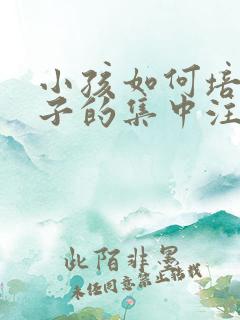 小孩如何培
子的集中注
此陌非墨
未经同意禁止转载